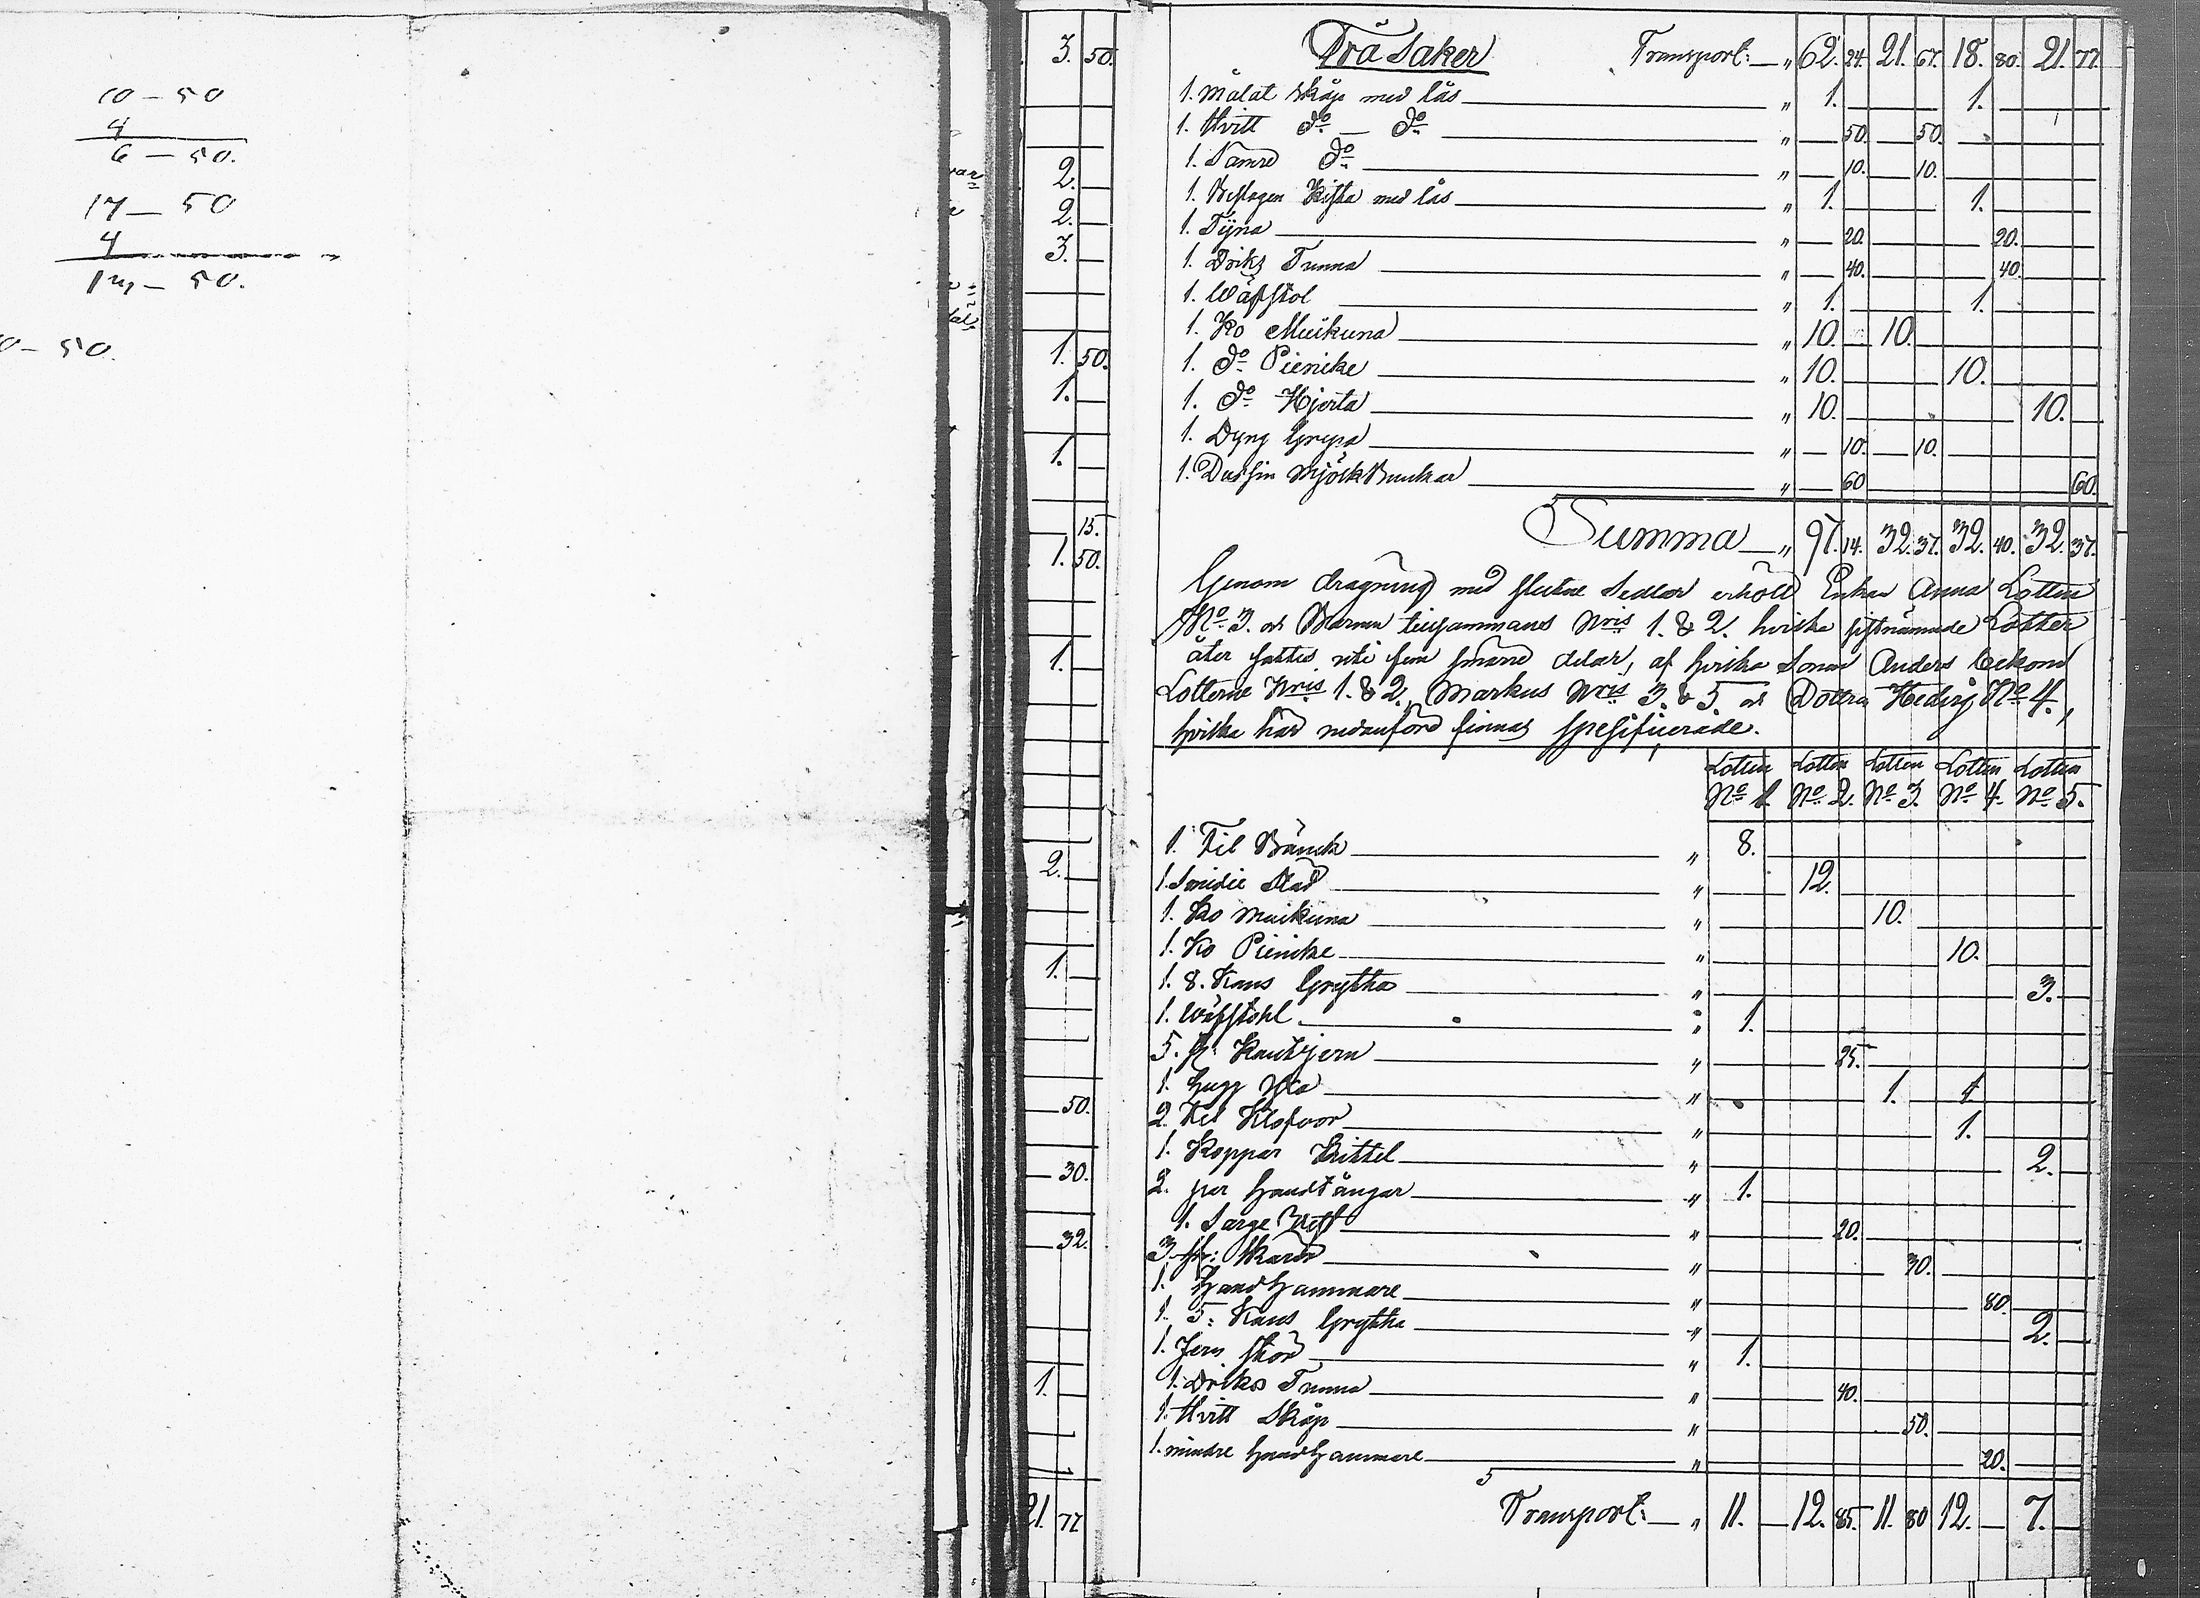 10 - 50
4
6 - 50.
17 - 50
4
- 50.
0 - 50.
3. 50.
2.
2.
3.
1. 50.
1.
1.
15.
1. 50.
1.
2.
1.
50.
30.
32.
1.
21. 77
Trä Saker Transport: — " 62. 24. 21. 67. 18. 80. 21. 77.
1. Målat skåp med lås " 1. 1.
1. Hvitt do — do " 50. 50.
1. Samre do " 10. 10.
1. Beslagen Kista med lås " 1. 1.
1. Tÿna " 20. 20.
1. Driks Tunna " 40. 40.
1. Wäfstol " 1. 1.
1. Ko Muikuna " 10. 10.
1. do Pienike " 10. 10.
1. do Hjerta " 10. 10.
1. Dyng Grepa " 10. 10.
1. Dussin Mjölk Bunkar " 60 60.
Summa — " 97. 14. 32. 37. 32. 40. 32. 37.
Genom dragning med slutne Sedlar erhöll Enkan Anna Lotten
No 3. och Barnen tillsammans Nris 1. & 2. hvilka sistnämnde Lotter
åter sattes uti fem smärre delar, af hvilka Sonen Anders bekom
Lotterne Nris 1. & 2, Markus Nris 3. & 5. och Dottren Hedvig No 4.,
hvilka här nedanföre finnas spesifiserade.
Lotten Lotten Lotten Lotten Lotten
No 1. No 2. No 3. No 4. No 5.
1. Fil Bänck " 8.
1. Smidie Städ " 12.
1. Ko Muikuna " 10.
1. Ko Pienike " 10.
1. 8. Kans Grytha " 3.
1. Wäfstohl " 1.
5. Kantjern " 25.
1. " 1. 1.
2. " 1.
1. Koppar Kittel " 2.
2. par Handtänger " 1.
1. " 20.
3. st: Skäror " 30.
1. Hand Hammare " 80.
1. 5: Kans Grytha " 2.
1. Jern Stör " 1.
1. Driks Tunna " 40.
1. Hvitt Skåp " 50.
1. mindre Handhammare " 20.
Transport: — " 11. — 12. 85. 11. 80 12. — 7. —